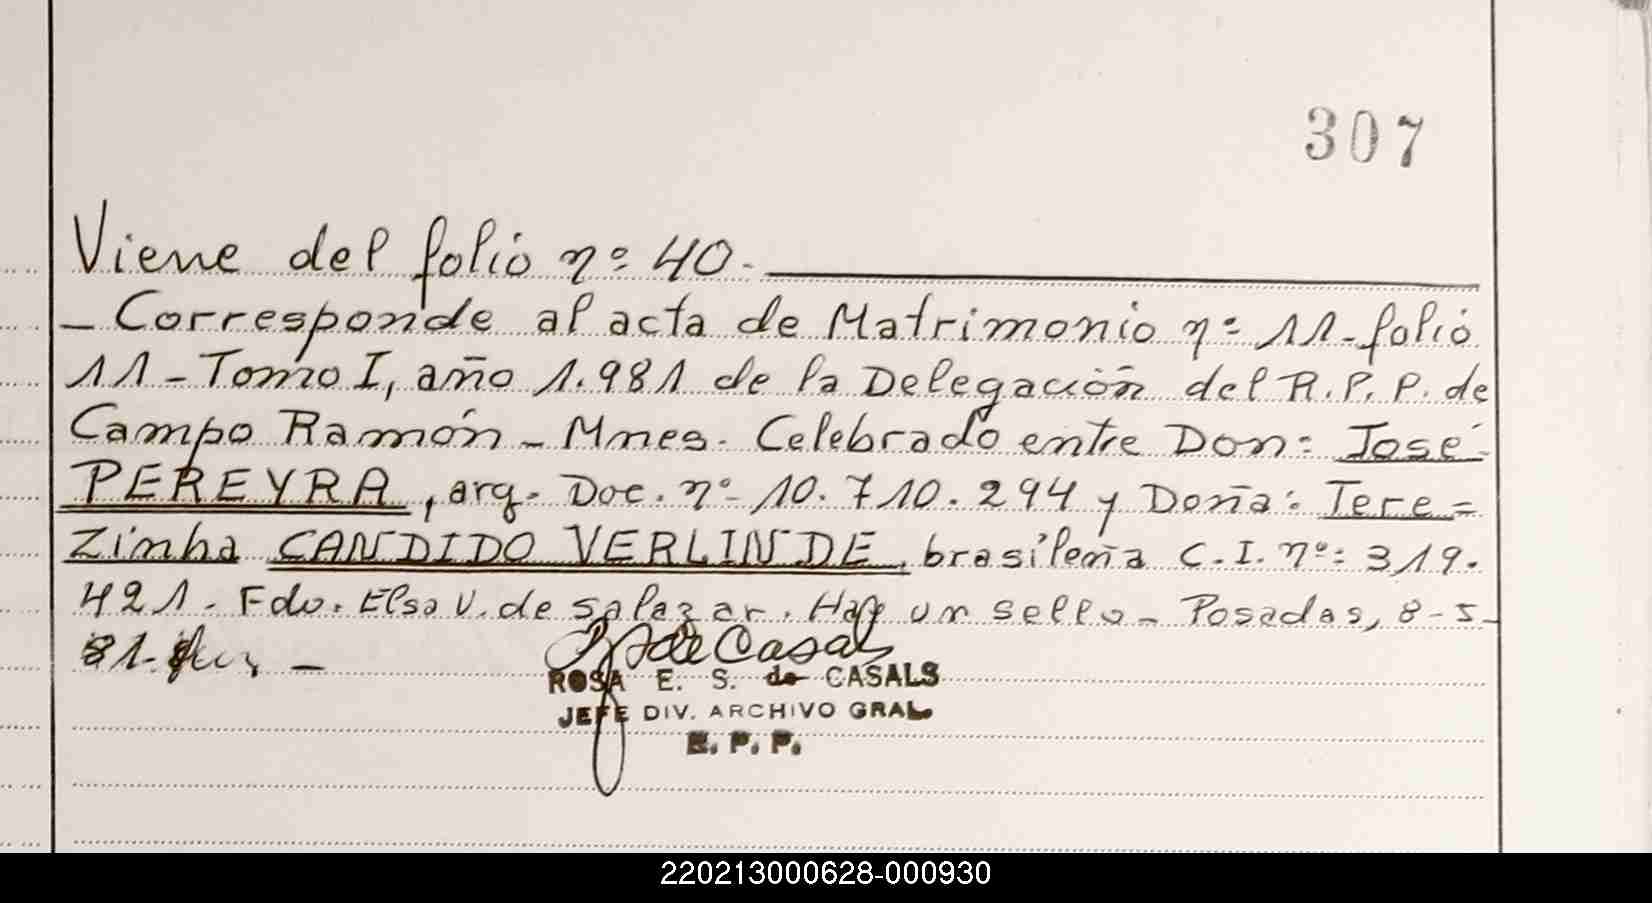 307
Viene del folio nº 40.
- Corresponde al acta de Matrimonio nº 11 - folio
11 - Tomo I, año 1.981 de la Delegación del R.P.P. de
Campo Ramón - Mnes. Celebrado entre Don: José
PEREYRA, arg. Doc. nº 10.710.294 y Doña: Tere=
zinha CANDIDO VERLINDE, brasileña C.I. nº: 319.
421. Fdo. Elsa V. de Salazar. Hay un sello - Posadas, 8-5-
81.
de Casals
ROSA E. S. de CASALS
JEFE DIV. ARCHIVO GRAL.
R. P. P.
220213000628-000930